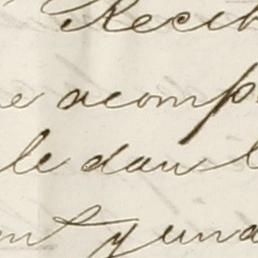 Recib
e acomp
le dan l
nt y una